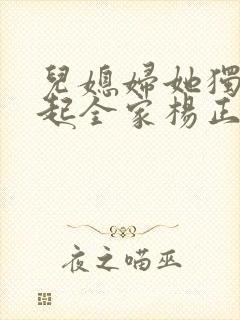 兒媳婦她獨
起全家楊正
夜之喵巫